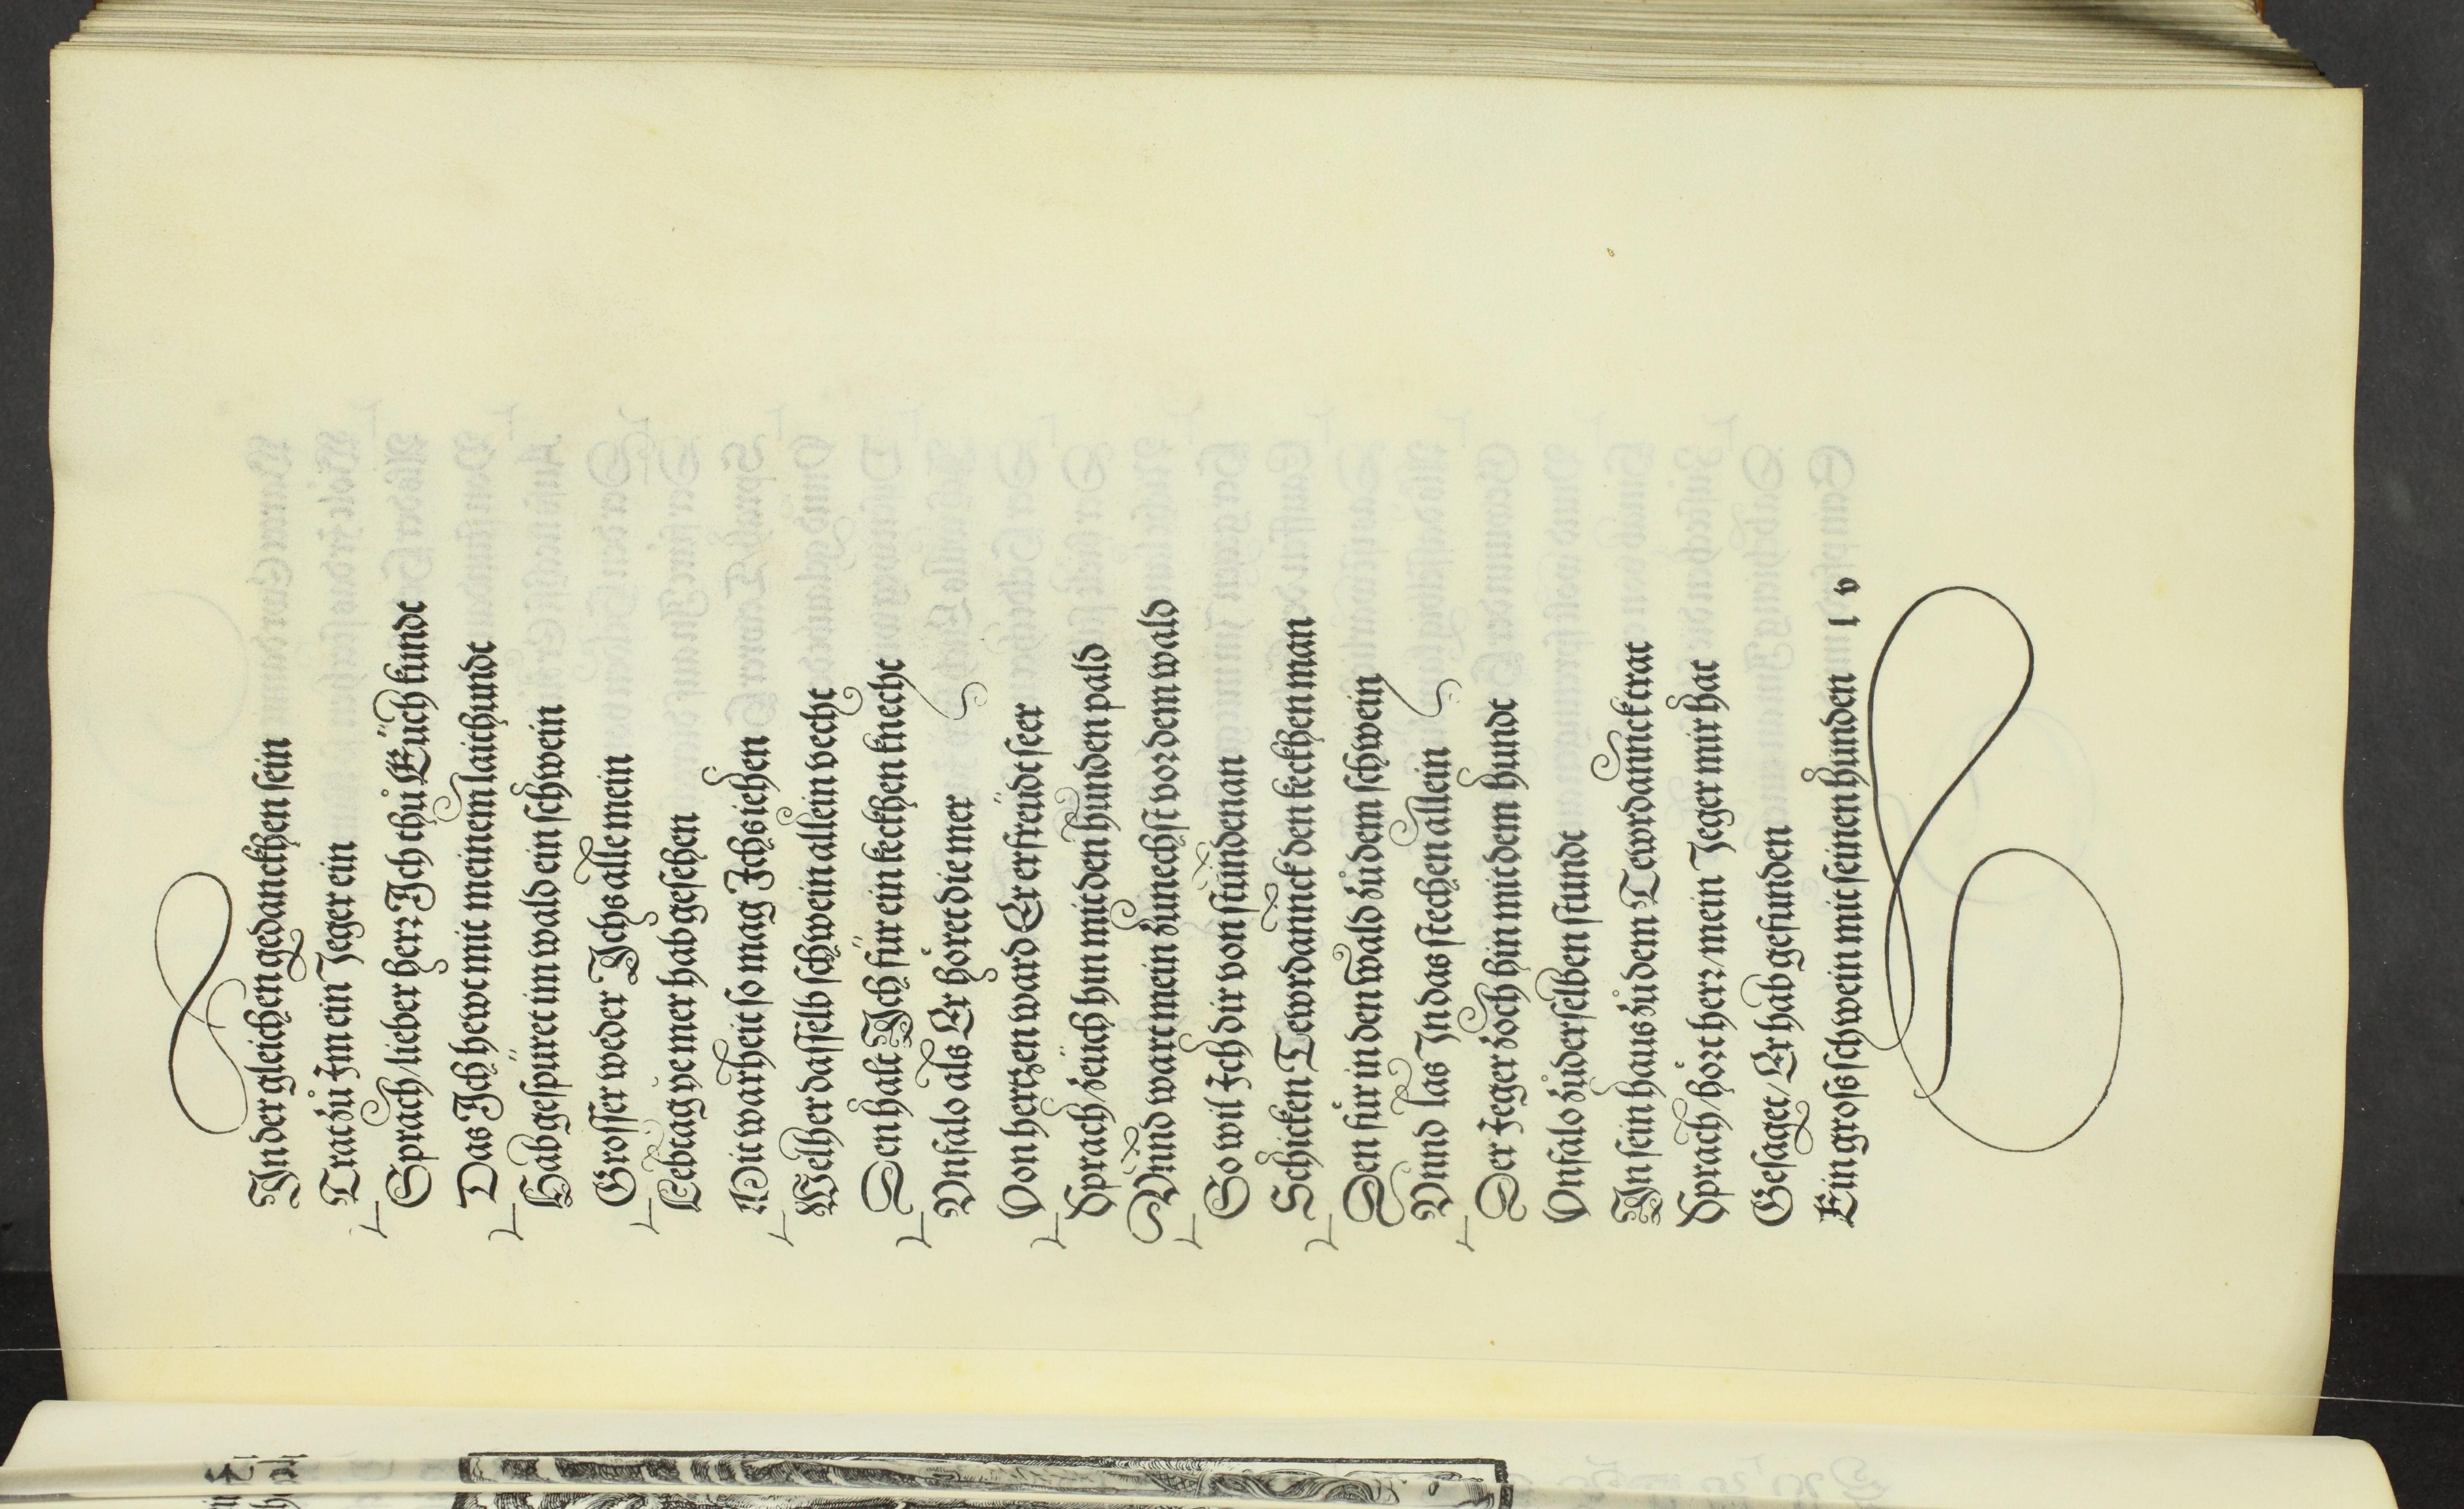 In der gleichen gedanckhen sein
Trat zů Im ein Jeger ein
Sprach/ lieber herr Ich thů Eüch kundt
Das Ich hewt mit meinem laithundt
Hab gespüret im wald ein schwein
Grosser weder Ichs alle mein
Lebtag ye mer hab gesehen
Die warheit so mag Ichs iehen
Welher dasselb schwein allein vecht
Den halt Ich für ein keckhen knecht
Vnfalo als Er höret die mer
Von hertzen ward Er erfreüdt seer
Sprach/ zeüch hin mit den hunden pald
Vnnd wart mein zunechst vor dem wald
So wil Ich dir von stunden an
Schicken Tewrdannck den keckhen man
Den für in den wald zů dem schwein
Vnnd las In das stechen allein
Der Jeger zoch hin mit dem hundt
Vnfalo zů derselben stundt
In sein haus zů dem Tewrdannck trat
Sprach/ hört herr/ mein Jeger mir hat
Gesaget/ Er hab gefunden
Ein gross schwein mit seinen hunden
l v